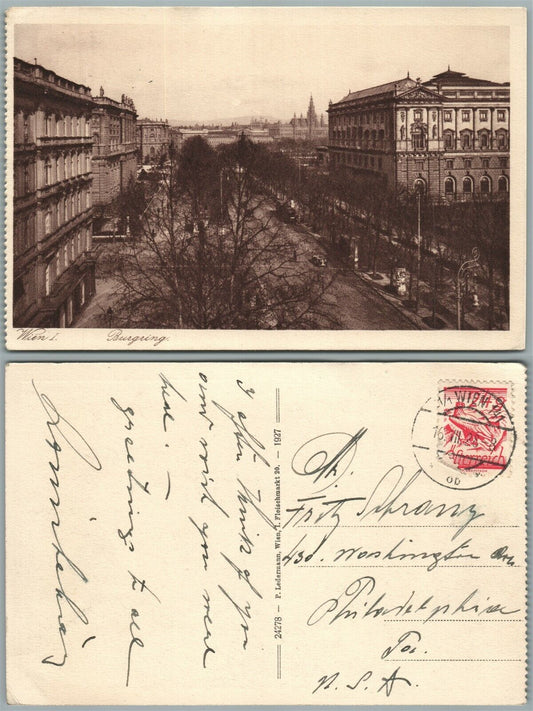 Wien I. Burgring.
I often think of you
and wish you were
here. —
greetings to all
24278 — P. Ledermann, Wien, I. Fleischmarkt 20. — 1927
Mr.
Fritz Schranz
430. Washington Ave
Philadelphia
Pa.
U. S. A.
WIEN